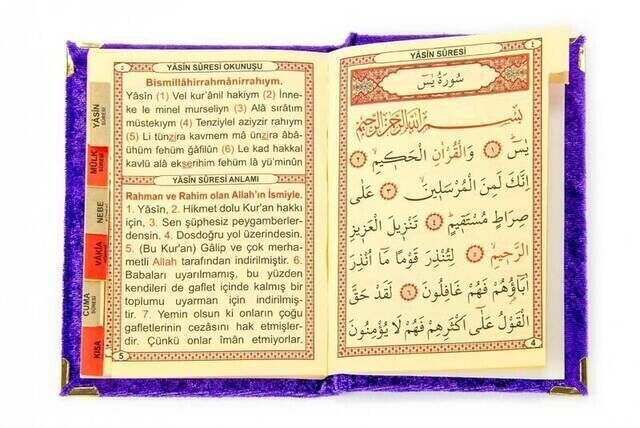 YÂSİN SÛRESİ OKUNUŞU
Bismillâhirrahmânirrahıym.
Yâsîn (1) Vel kur'ânil hakiym (2) İnne-
ke le minel murseliyn (3) Alâ sırâtım
müstekıym (4) Tenziylel aziyzir rahıym
(5) Li tünzira kavmem mâ ünzira âbâ-
ühüm fehüm ğâfilûn (6) Le kad hakkal
kavlü alâ ekserihim fehüm lâ yü'minûn
YÂSİN SÛRESİ ANLAMI
Rahman ve Rahim olan Allah'ın İsmiyle.
1. Yâsîn, 2. Hikmet dolu Kur'an hakkı
için, 3. Sen şüphesiz peygamberler-
densin. 4. Dosdoğru yol üzerindesin.
5. (Bu Kur'an) Gâlip ve çok merha-
metli Allah tarafından indirilmiştir. 6.
Babaları uyarılmamış, bu yüzden
kendileri de gaflet içinde kalmış bir
toplumu uyarman için indirilmiş-
tir. 7. Yemin olsun ki onların çoğu
gafletlerinin cezasını hak etmişler-
dir. Çünkü onlar îmân etmiyorlar.
5
YÂSİN SÛRESİ
MÜLK SÛRESİ
NEBE
VÂKIA
CUMA SÛRESİ
KISA
YÂSİN SÛRESİ
٤
سُورَةُ يٰسٓ
بِسْــمِ اللّٰهِ الرَّحْمٰنِ الرَّحِيمِ
يٰسٓ ﴿١﴾ وَالْقُرْاٰنِ الْحَكِيمِۙ ﴿٢﴾
اِنَّكَ لَمِنَ الْمُرْسَلِينَۙ ﴿٣﴾ عَلٰى
صِرَاطٍ مُسْتَقِيمٍۜ ﴿٤﴾ تَنْزِيلَ الْعَزِيزِ
الرَّحِيمِۙ ﴿٥﴾ لِتُنْذِرَ قَوْمًا مَٓا اُنْذِرَ
اٰبَٓاؤُ۬هُمْ فَهُمْ غَافِلُونَ ﴿٦﴾ لَقَدْ حَقَّ
الْقَوْلُ عَلٰٓى اَكْثَرِهِمْ فَهُمْ لَا يُؤْمِنُونَ
4